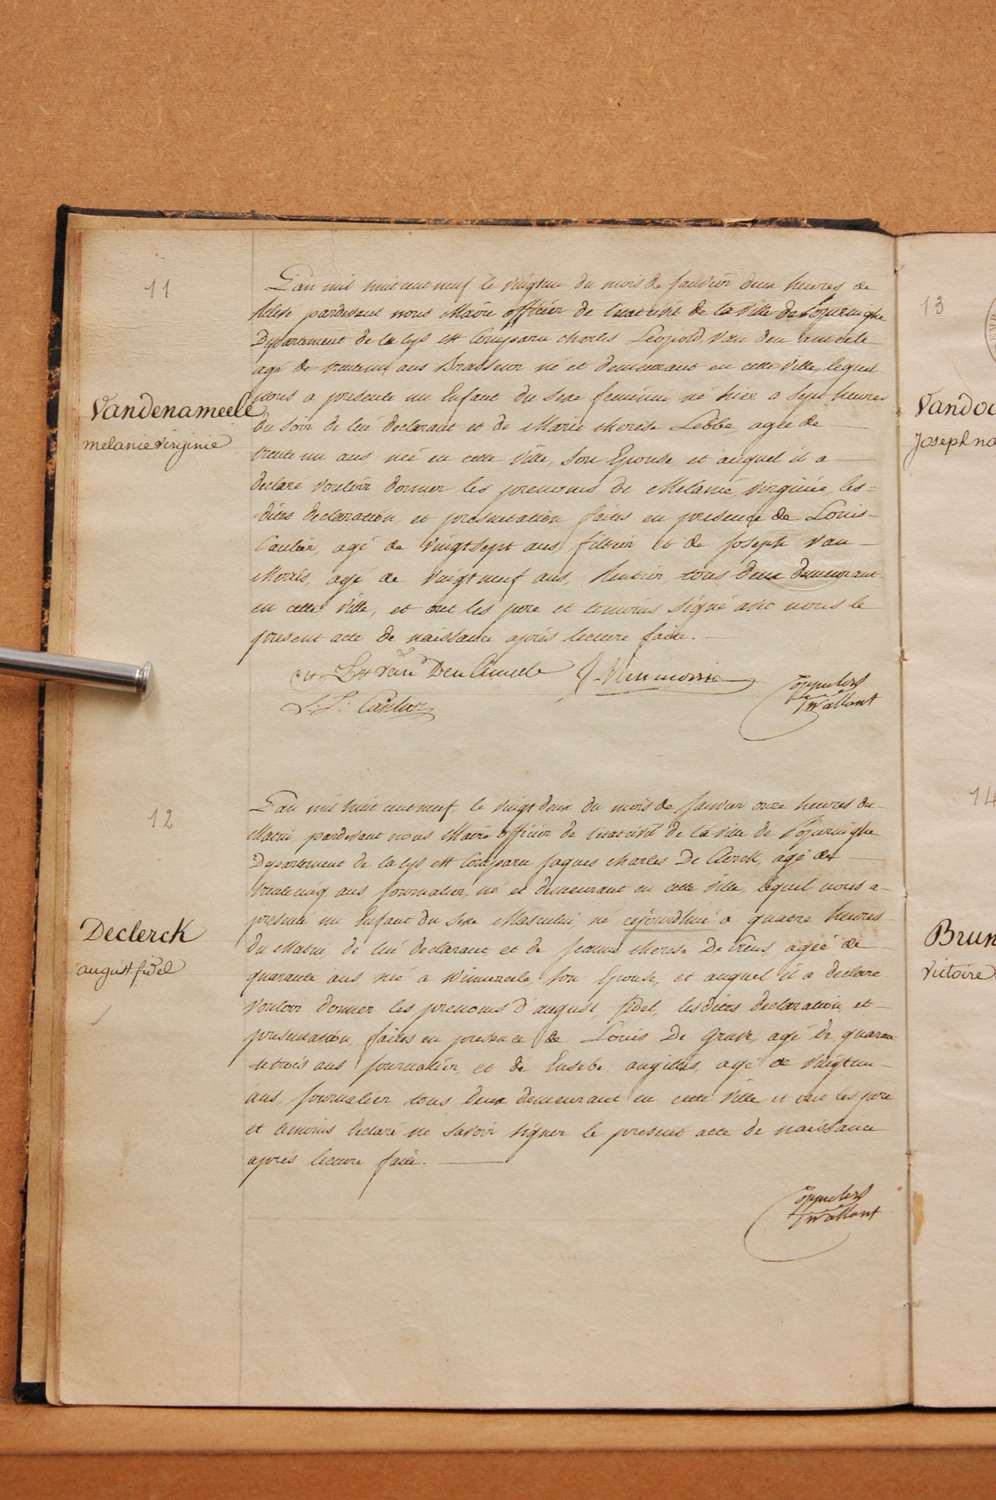 11
L'an mil huit cent neuf le vingtun du mois de Janvier deux heures de
relevé pardevant nous Maire officier de l'etat civil de la ville de Poperinghe
Departement de la Lys est Comparu charles Leopold Van den ameele
agé de trente un ans Brasseur né et demeurant en cette ville, lequel
nous a presenté un Enfant du sexe feminin né hier a sept heures
Vandenameele
melanie virginie
du soir de lui declarant et de Marie therese Lebbe, agée de
trente un ans née en cette ville, son Epouse et auquel il a
declaré vouloir donner les prenoms de Melanie Virginie, les-
-dites declaration et presentation faites en presence de Louis
Caulier, agé de vingtsept ans, et de Joseph Van
Merris, agé de vingtneuf ans, Rentier, tous deux demeurant
en cette ville, et ont les pere et temoins signé avec nous le
present acte de naissance après lecture faite.
Van Den Ameele
13
Vandou
Joseph
12
L'an mil huit cent neuf le vingt deux du mois de Janvier onze heures du
Matin, pardevant nous Maire officier de l'etat civil de la ville de Poperinghe
Departement de la Lys est Comparu Jaques Charles De Clerck, agé de
trentecinq ans journalier, né et demeurant en cette ville, lequel nous a
presenté un Enfant du sexe Masculin né cejourdhui a quatre heures
Declerck
august fidel
du Matin, de lui declarant et de Jeanne therese De , agée de
quarante ans née a Winnezeele, son Epouse, et auquel il a declaré
vouloir donner les prenoms d'august, fidel, lesdites declaration et
presentation, faites en presence de Louis De Grave, agé de quaran
-te trois ans journalier, et de Eusebe augillis, agé de vingtun
ans, journalier tous deux demeurant en cette ville et ont les pere
et temoins declaré ne savoir signer le present acte de naissance
après lecture faite.
14
Brun
Victoire